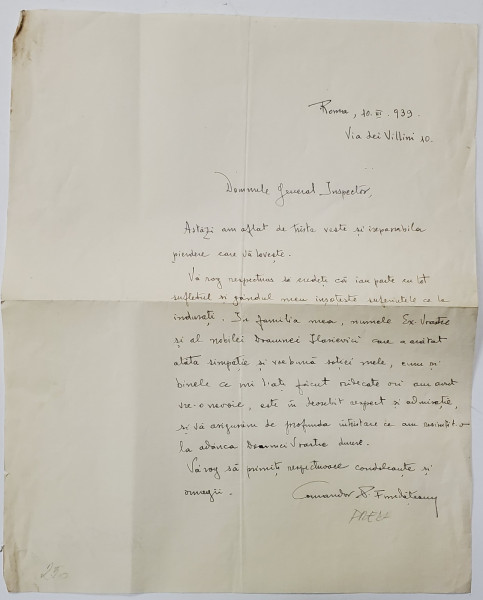 Roma, 10.XI.939.
Via dei Villini 10.
Domnule General Inspector,
Astăzi am aflat de trista veste și ireparabila
pierdere care vă lovește.
Vă rog respectuos să credeți că iau parte cu tot
sufletul și gândul meu însoțește suferințele ce le
îndurați. În familia mea, numele Ex. Voastre
și al nobilei Doamnei Ilasievici care a arătat
atâta simpatie și soției mele, cum și
binele ce mi l'ați făcut oridecâte ori am avut
vre-o nevoie, este în deosebit respect și admirație,
și vă asigurăm de profunda întristare ce am resimțit-o
la adânca Domniei Voastre durere.
Vă rog să primiți respectuoase condoleanțe și
omagii.
Comandor
23